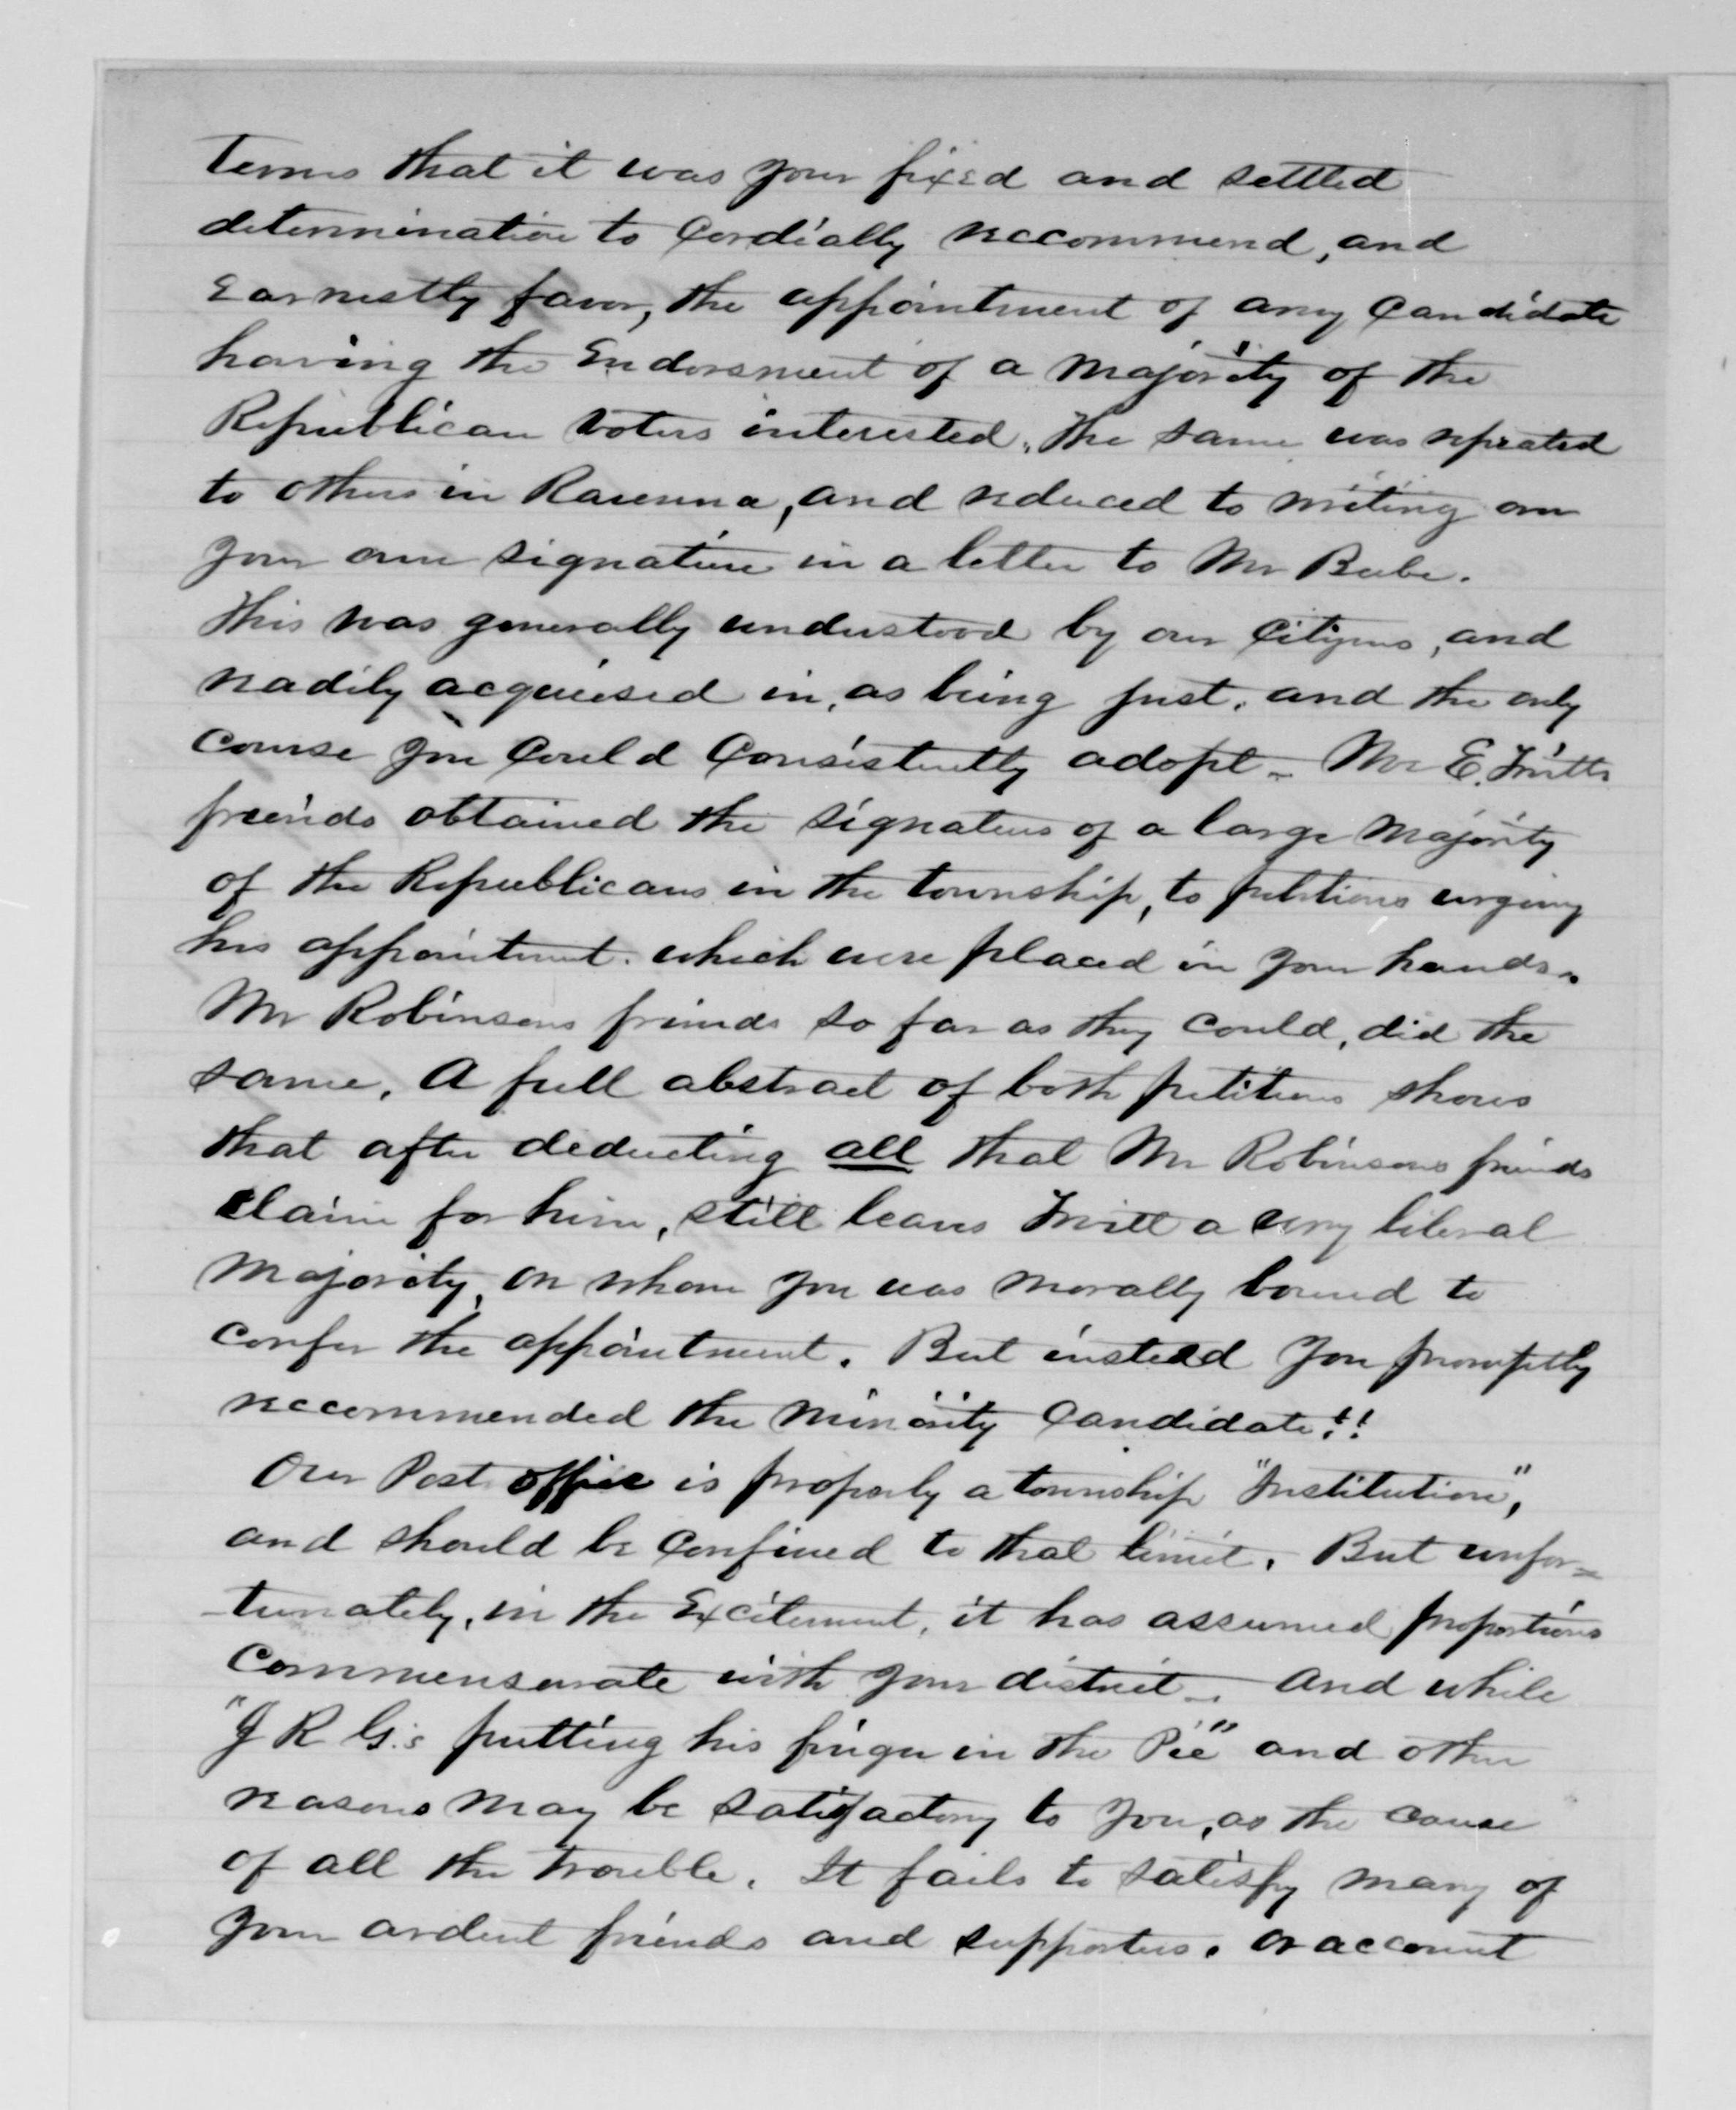 terms that it was your fixed and settled
determination to Cordially reccommend, and
Earnestly favor, the appointment of any Candidate
having the Endorsment of a Majority of the
Republican voters interested. The same was repeated
to others in Ravenna, and reduced to writing over
your own signature in a letter to Mr Beebe.
This was generally understood by our Citizens, and
readily acquiesed in, as being just. and the only
course you Could Consistently adopt - Mr E.
freinds obtained the signatures of a large Majority
of the Republicans in the township, to petitions urging
his appointment. which were placed in your hands.
Mr Robinsons friends so far as they could, did the
same. A full abstract of both petitions shows
that after deducting all that Mr Robinsons friends
claim for him, still leaves a very liberal
Majority, on whom you was Morally bound to
confer the appointment. But instead you promptly
reccommended the Minority Candidate!!
Our Post office is properly a township "Institution",
and should be Confined to that limit. But unfor-
-tunately, in the Excitement, it has assumed proportions
Commensurate with your district - And while
"J R G.s putting his finger in the Pie" and other
reasons may be satisfactory to you, as the cause
of all the trouble. It fails to satisfy many of
your ardent friends and supporters. or account